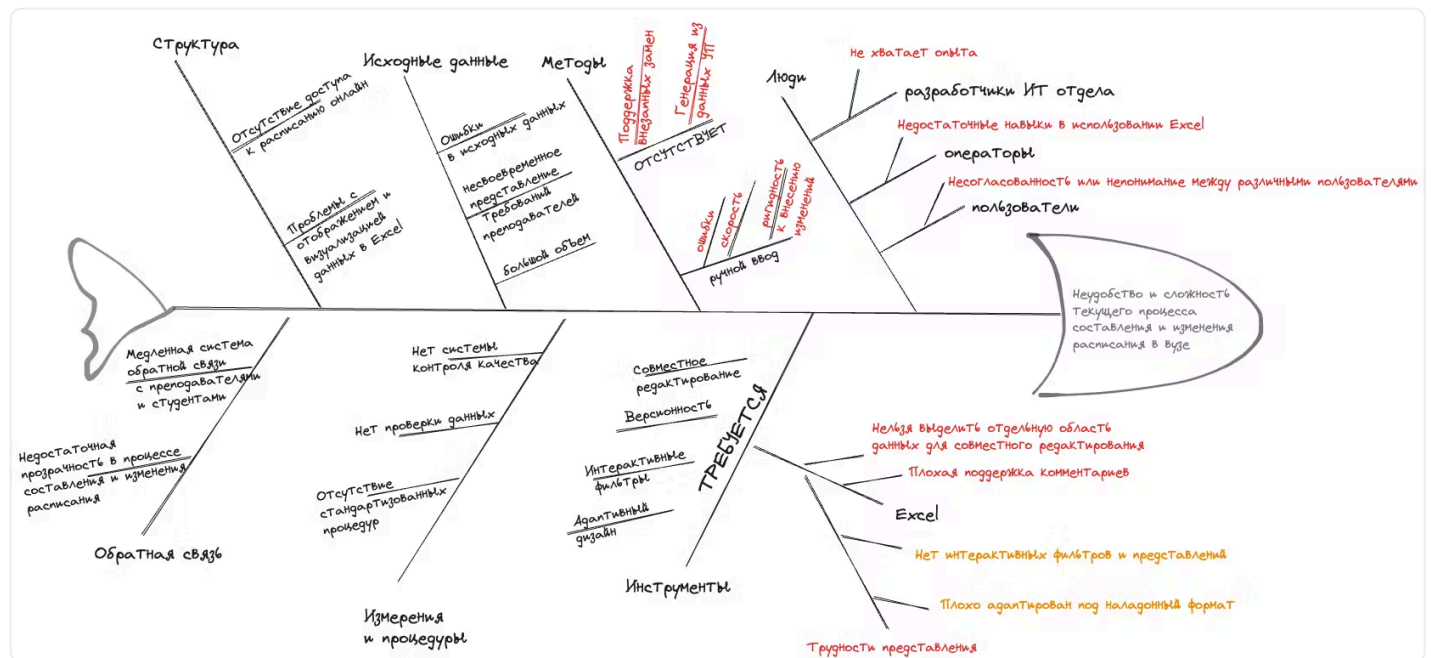 Структура
Отсутствие доступа
к расписанию онлайн
Проблемы с
отображением и
визуализацией
данных в Excel
Исходные данные
Ошибки
в исходных данных
несвоевременное
представление
требований
преподавателей
большой объем
Методы
Поддержка
внезапных замен
Генерация из
данных УП
ОТСУТСТВУЕТ
ошибки
скорость
ригидность
к внесению
изменений
ручной ввод
Люди
Не хватает опыта
разработчики ИТ отдела
Недостаточные навыки в использовании Excel
операторы
Несогласованность или непонимание между различными пользователями
пользователи
Неудобство и сложность
текущего процесса
составления и изменения
расписания в вузе
Медленная система
обратной связи
с преподавателями
и студентами
Недостаточная
прозрачность в процессе
составления и изменения
расписания
Обратная связь
Нет системы
контроля качества
Нет проверки данных
Отсутствие
стандартизованных
процедур
Измерения
и процедуры
Совместное
редактирование
Версионность
Интерактивные
фильтры
Адаптивный
дизайн
ТРЕБУЕТСЯ
Инструменты
Нельзя выделить отдельную область
данных для совместного редактирования
Плохая поддержка комментариев
Excel
Нет интерактивных фильтров и представлений
Плохо адаптирован под наладонный формат
Трудности представления